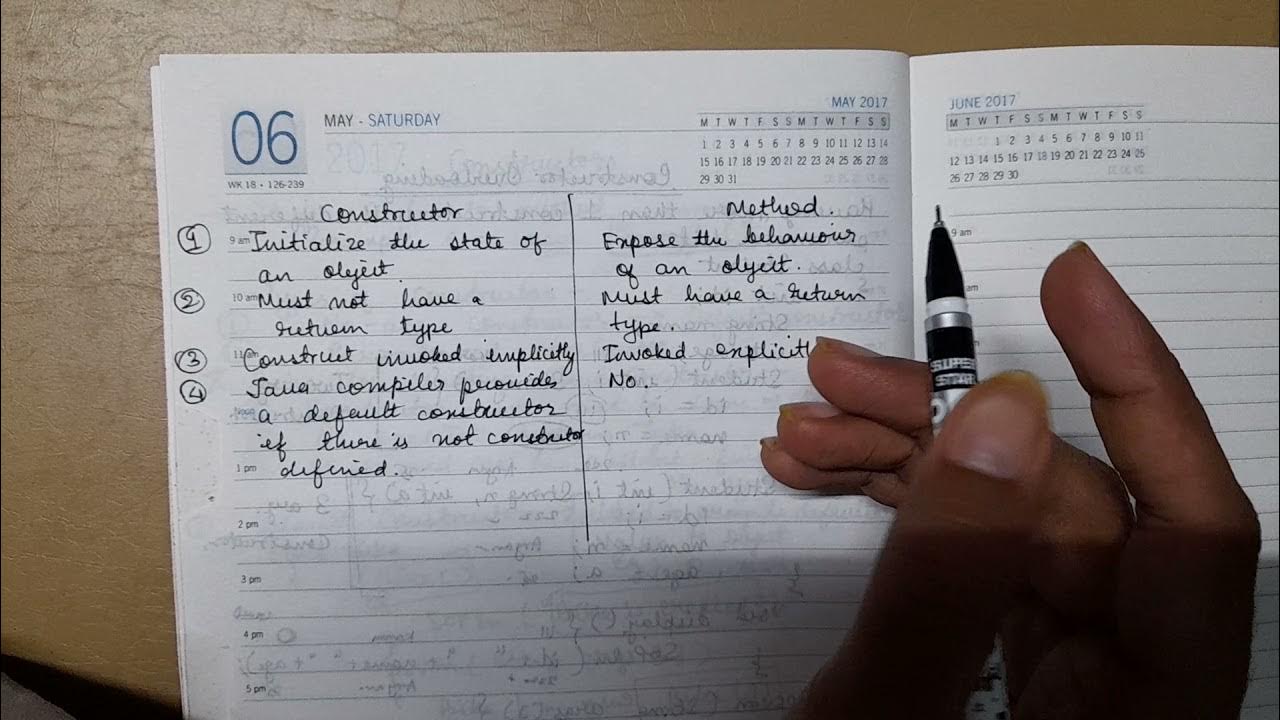 06
MAY - SATURDAY
WK 18 • 126-239
MAY 2017
M T W T F S S M T W T F S S
1 2 3 4 5 6 7 8 9 10 11 12 13 14
15 16 17 18 19 20 21 22 23 24 25 26 27 28
29 30 31
Constructor
Method.
1 9 am Initialize the state of
an object
Expose the behaviour
of an object.
2 10 am Must not have a
return type
Must have a return
type.
3 11 am Construct invoked implicitly
Invoked explicitl
4 Java compiler provides
Noon a default constructor
if there is not constructor
1 pm defined.
No
2 pm
3 pm
4 pm
5 pm
JUNE 2017
M T W T F S S M T W T F S S
1 2 3 4 5 6 7 8 9 10 11
12 13 14 15 16 17 18 19 20 21 22 23 24 25
26 27 28 29 30
9 am
am
SUPER